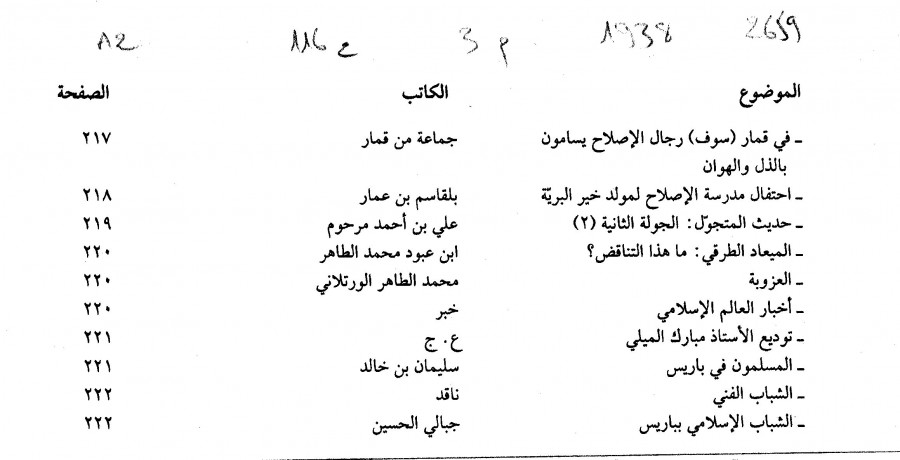 2659 1938 م 3 ع 116 A2
الموضوع الكاتب الصفحة
ـ في قمار (سوف) رجال الإصلاح يسامون جماعة من قمار ٢١٧
بالذل والهوان
ـ احتفال مدرسة الإصلاح لمولد خير البريّة بلقاسم بن عمار ٢١٨
ـ حديث المتجوّل: الجولة الثانية (٢) علي بن أحمد مرحوم ٢١٩
ـ الميعاد الطرقي: ما هذا التناقض؟ ابن عبود محمد الطاهر ٢٢٠
ـ العزوبة محمد الطاهر الورتلاني ٢٢٠
ـ أخبار العالم الإسلامي خبر ٢٢٠
ـ توديع الأستاذ مبارك الميلي ع. ج ٢٢١
ـ المسلمون في باريس سليمان بن خالد ٢٢١
ـ الشباب الفني ناقد ٢٢٢
ـ الشباب الإسلامي بباريس جبالي الحسين ٢٢٢